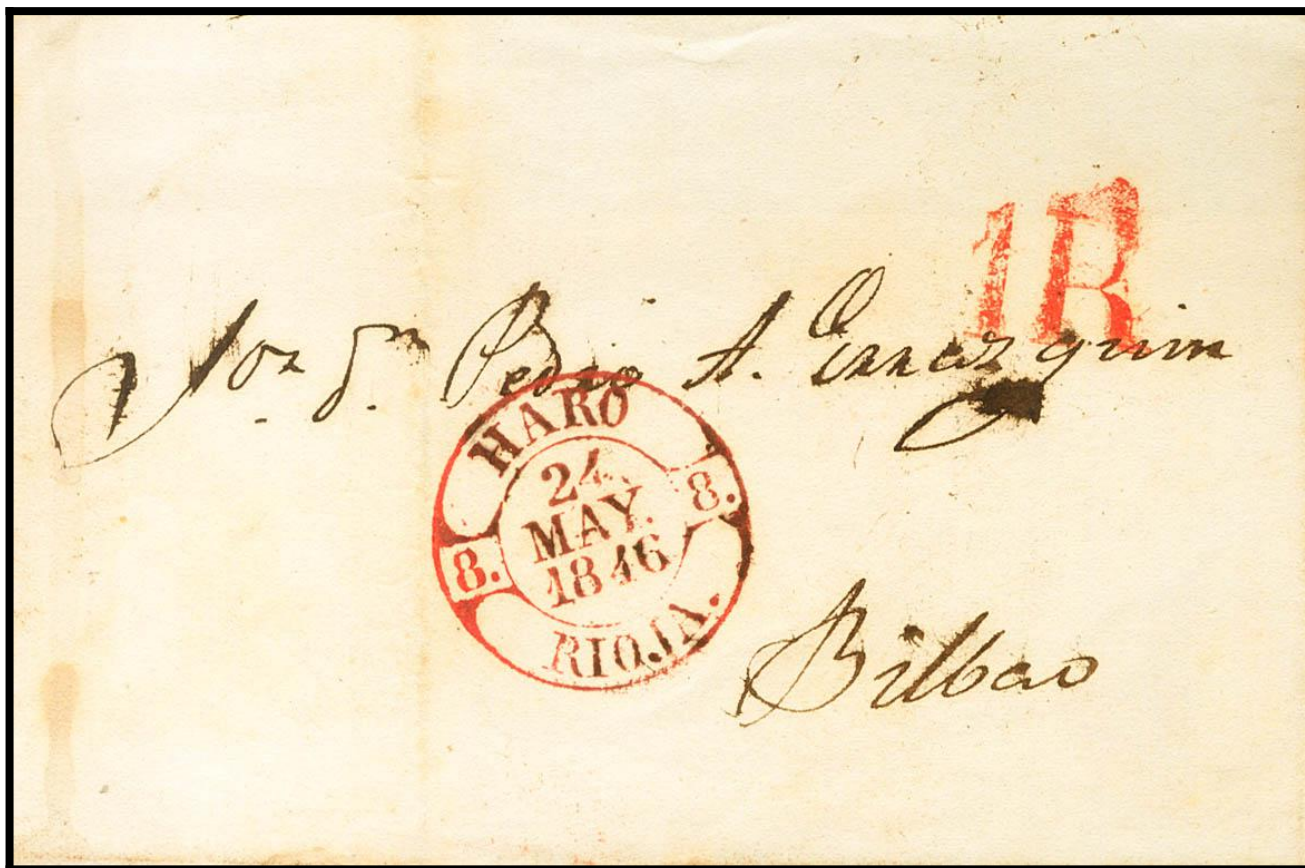 1R
Sor Dn Pedro A. Errazquin
HARO
8. 24 MAY. 1846 8.
RIOJA.
Bilbao